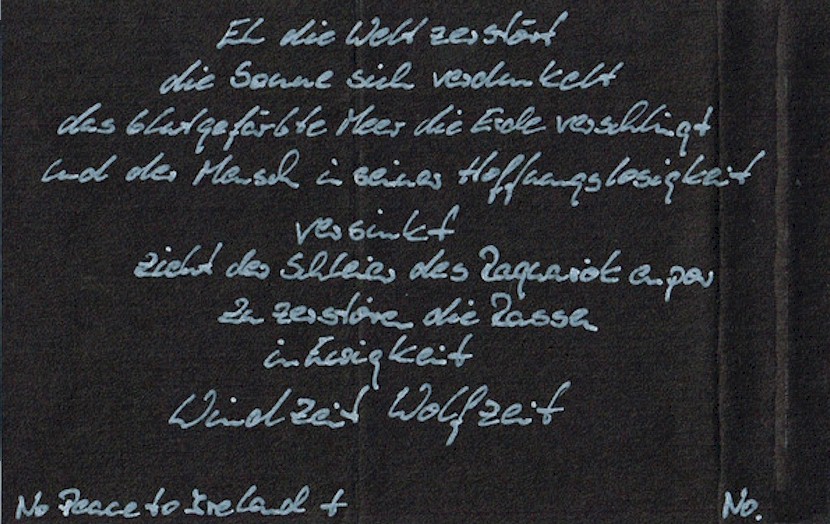 Eh die Welt zerstört
die Sonne sich verdunkelt
das blutgefärbte Meer die Erde verschlingt
und der Mensch in seiner Hoffnungslosigkeit
versinkt
zieht der Schleier des Ragnarök empor
Zu zerstören die Rassen
in Ewigkeit
Windzeit Wolfzeit
No Peace to Ireland +
No.